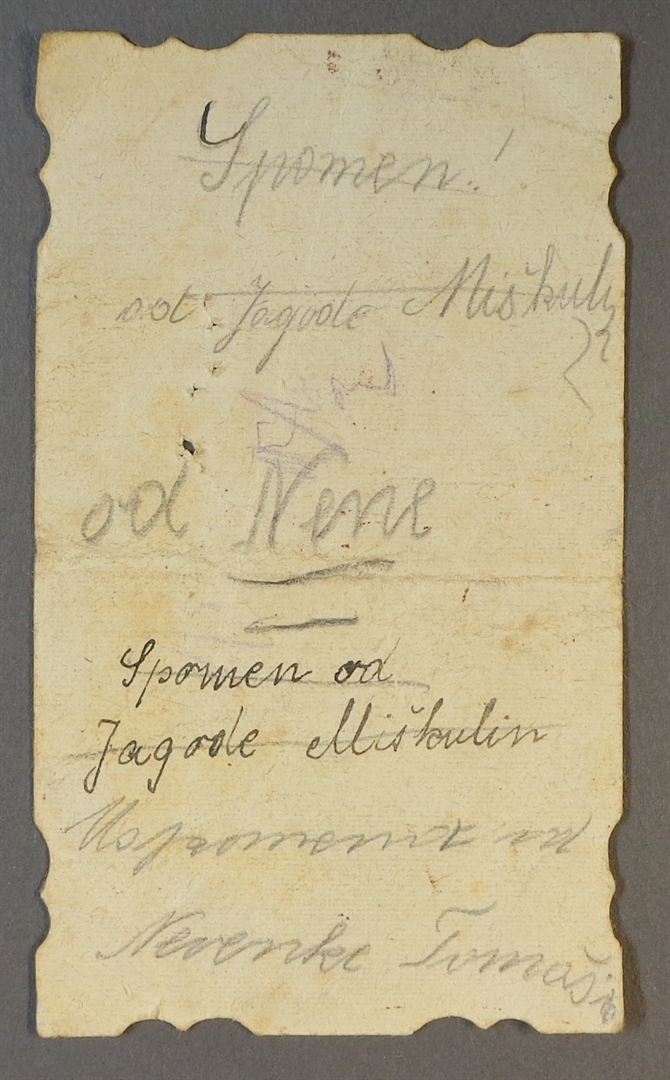 Spomen!
od Jagode Miškulin
od Nene
Spomen od
Jagode Miškulin
Uspomena od
Nevenke Tomašić